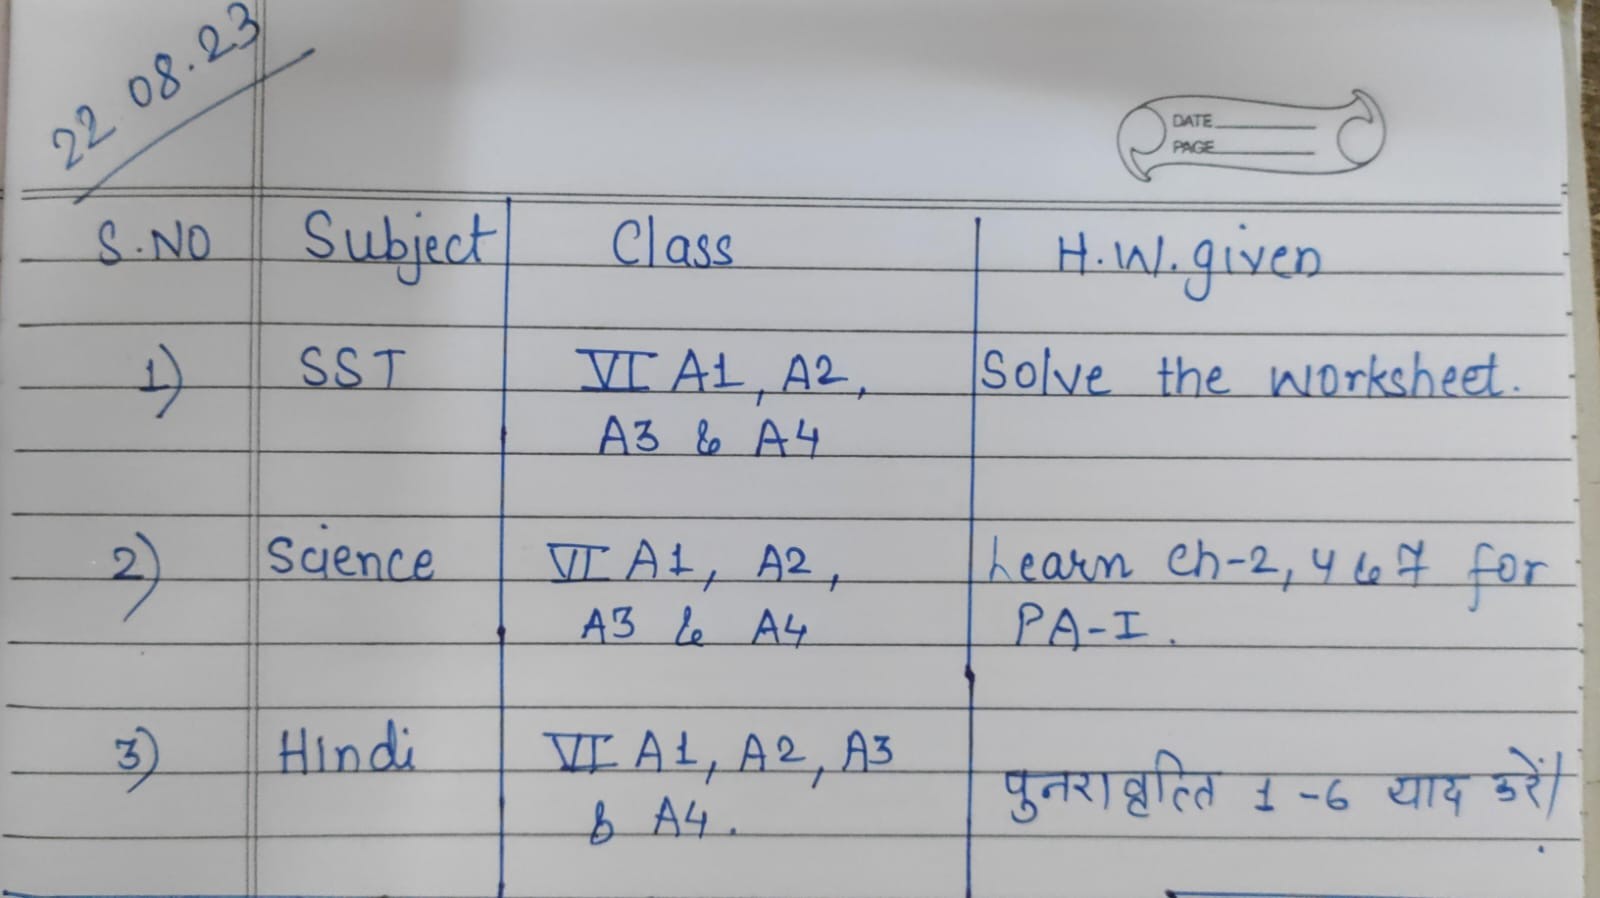 22.08.23
DATE
PAGE
S.NO Subject Class H.W. given
1) SST VI A1, A2, Solve the worksheet.
A3 & A4
2) Science VI A1, A2, Learn Ch-2, 4 & 7 for
A3 & A4 PA-I.
3) Hindi VI A1, A2, A3 पुनरावृत्ति 1-6 याद करें।
& A4.